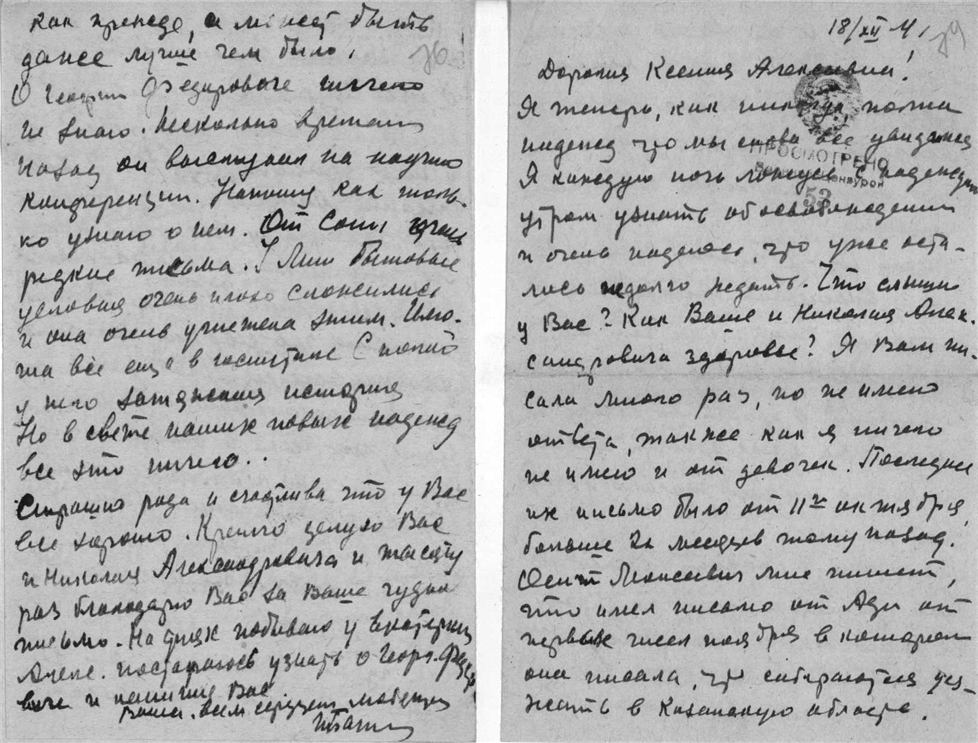 как прежде, а может быть
даже лучше чем было!
76
О Георгии Федоровиче ничего
не знаю. Несколько времени
назад он выступал на научно
конференции. Напишу как толь-
ко узнаю о нем. От Сони очень
редкие письма. У Лили бытовые
условия очень плохо сложились
и она очень угнетена этим.
та всё ещё в госпитале С ногой
у него затяжная история
Но в свете наших новых надежд
все это ничего..
Страшно рада и счастлива что у Вас
все хорошо. Крепко целую Вас
и Николая Александровича и тысячу
раз благодарю Вас за Ваше чудное
письмо. На днях побываю у Екатерины
Алекс. постараюсь узнать о Георг. Федо
виче и напишу Вас
Ваша, всем сердцем любящая
18/XII 41
79
Дорогая Ксения Алексеевна!
Я теперь, как никогда, полна
надежд что мы снова все увидимся
ПРОСМОТРЕНО
Военной Цензурой
53
Я каждую ночь ложусь с надеждой
утром узнать об освобождении
и очень надеюсь, что уже оста-
лось недолго ждать. Что слышно
у Вас? Как Ваше и Николая Алек-
сандровича здоровье? Я Вам пи-
сала много раз, но не имею
ответа, также как я ничего
не имею и от девочек. Последнее
их письмо было от 11го октября,
больше 2х месяцев тому назад.
Осип Моисеевич мне пишет,
что имел письмо от Ади от
первых чисел ноября в котором
она писала, что собираются уез-
жать в Казанскую область.